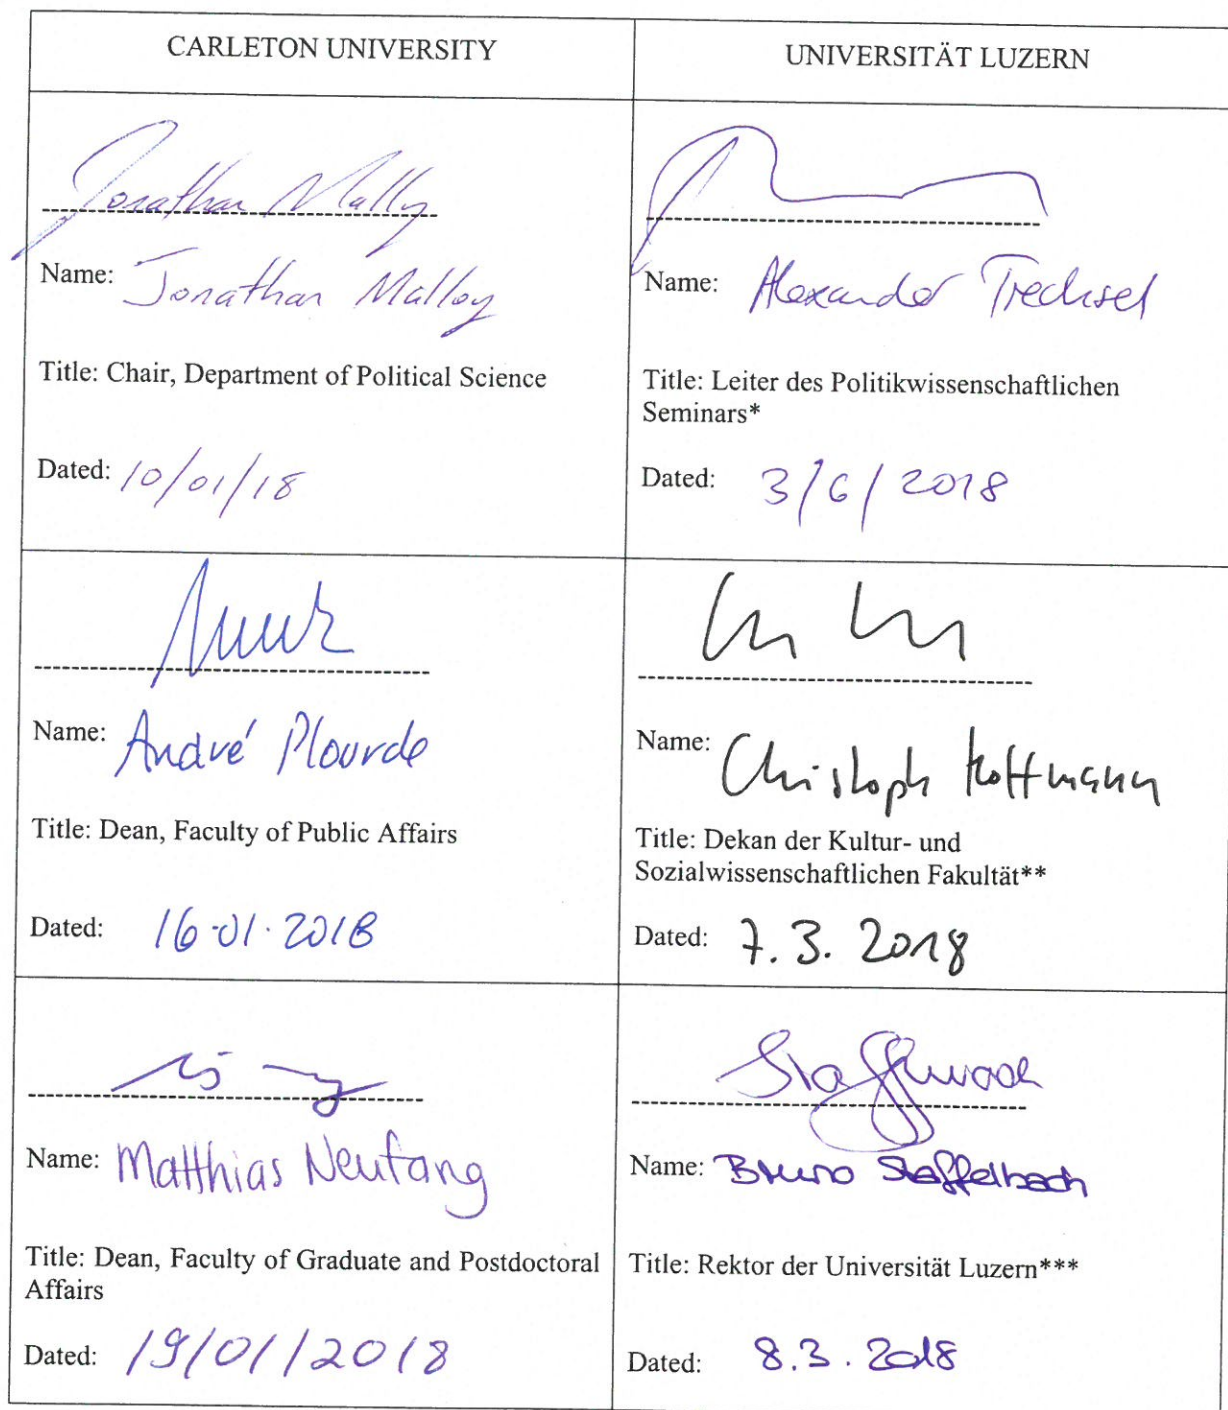 CARLETON UNIVERSITY
UNIVERSITÄT LUZERN
Jonathan Malloy
Name: Jonathan Malloy
Title: Chair, Department of Political Science
Dated: 10/01/18
Name: Alexander Trechsel
Title: Leiter des Politikwissenschaftlichen
Seminars*
Dated: 3/6/2018
Name: André Plourde
Title: Dean, Faculty of Public Affairs
Dated: 16.01.2018
Name: Christoph Hoffmann
Title: Dekan der Kultur- und
Sozialwissenschaftlichen Fakultät**
Dated: 7.3.2018
Name: Matthias Neufang
Title: Dean, Faculty of Graduate and Postdoctoral
Affairs
Dated: 19/01/2018
Name: Bruno Staffelbach
Title: Rektor der Universität Luzern***
Dated: 8.3.2018